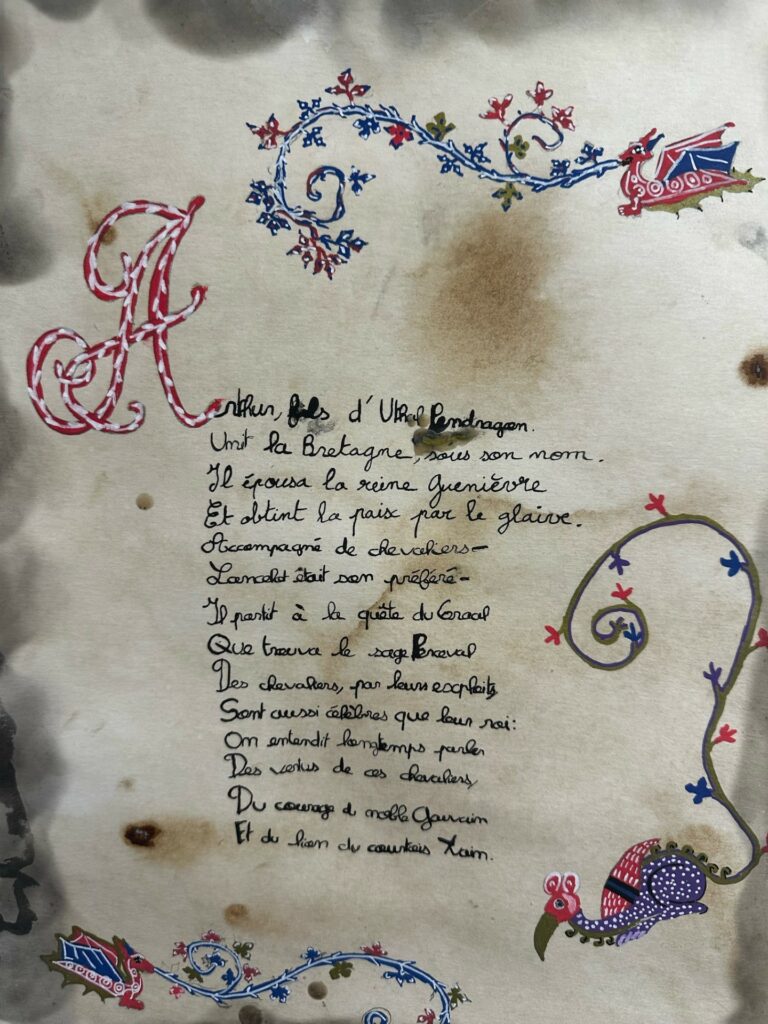 Arthur, fils d'Uthal Pendragon.
Unit la Bretagne, sous son nom.
Il épousa la reine Guenièvre
Et obtint la paix par le glaive.
Accompagné de chevaliers-
Lancelot était son préféré-
Il partit à la quête du Graal
Que trouva le sage Perceval
Des chevaliers, par leurs exploits,
Sont aussi célèbres que leur roi:
On entendit longtemps parler
Des vertus de ces chevaliers,
Du courage du noble Gauvain
Et du lien du courtois